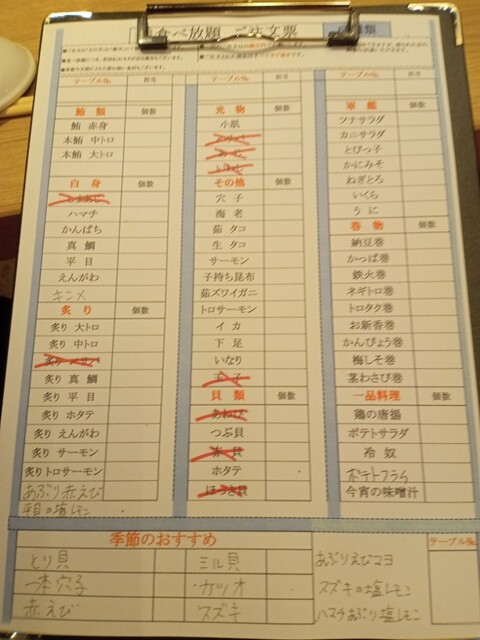 食べ放題 ご注文票
テーブル№
鮪類 個数
鮪 赤身
本鮪 中トロ
本鮪 大トロ
白身 個数
ハマチ
かんぱち
真鯛
平目
えんがわ
キンメ
炙り 個数
炙り 大トロ
炙り 中トロ
炙り 真鯛
炙り 平目
炙り ホタテ
炙り えんがわ
炙り サーモン
炙りトロサーモン
あぶり赤えび
平目の塩レモン
テーブル№
光物 個数
小肌
その他 個数
穴子
海老
茹タコ
生タコ
サーモン
子持ち昆布
茹ズワイガニ
トロサーモン
イカ
下足
いなり
玉子
貝類 個数
あわび
つぶ貝
赤貝
ホタテ
ほっき貝
テーブル№
軍艦 個数
ツナサラダ
カニサラダ
とびっ子
かにみそ
ねぎとろ
いくら
うに
巻物 個数
納豆巻
かっぱ巻
鉄火巻
ネギトロ巻
トロタク巻
お新香巻
かんぴょう巻
梅しそ巻
茎わさび巻
一品料理 個数
鶏の唐揚
ポテトサラダ
冷奴
ポテトフライ
今宵の味噌汁
季節のおすすめ
とり貝
一本穴子
赤えび
ミル貝
カツオ
スズキ
テーブル№
あぶりえびマヨ
スズキの塩レモン
ハマチあぶり塩レモン